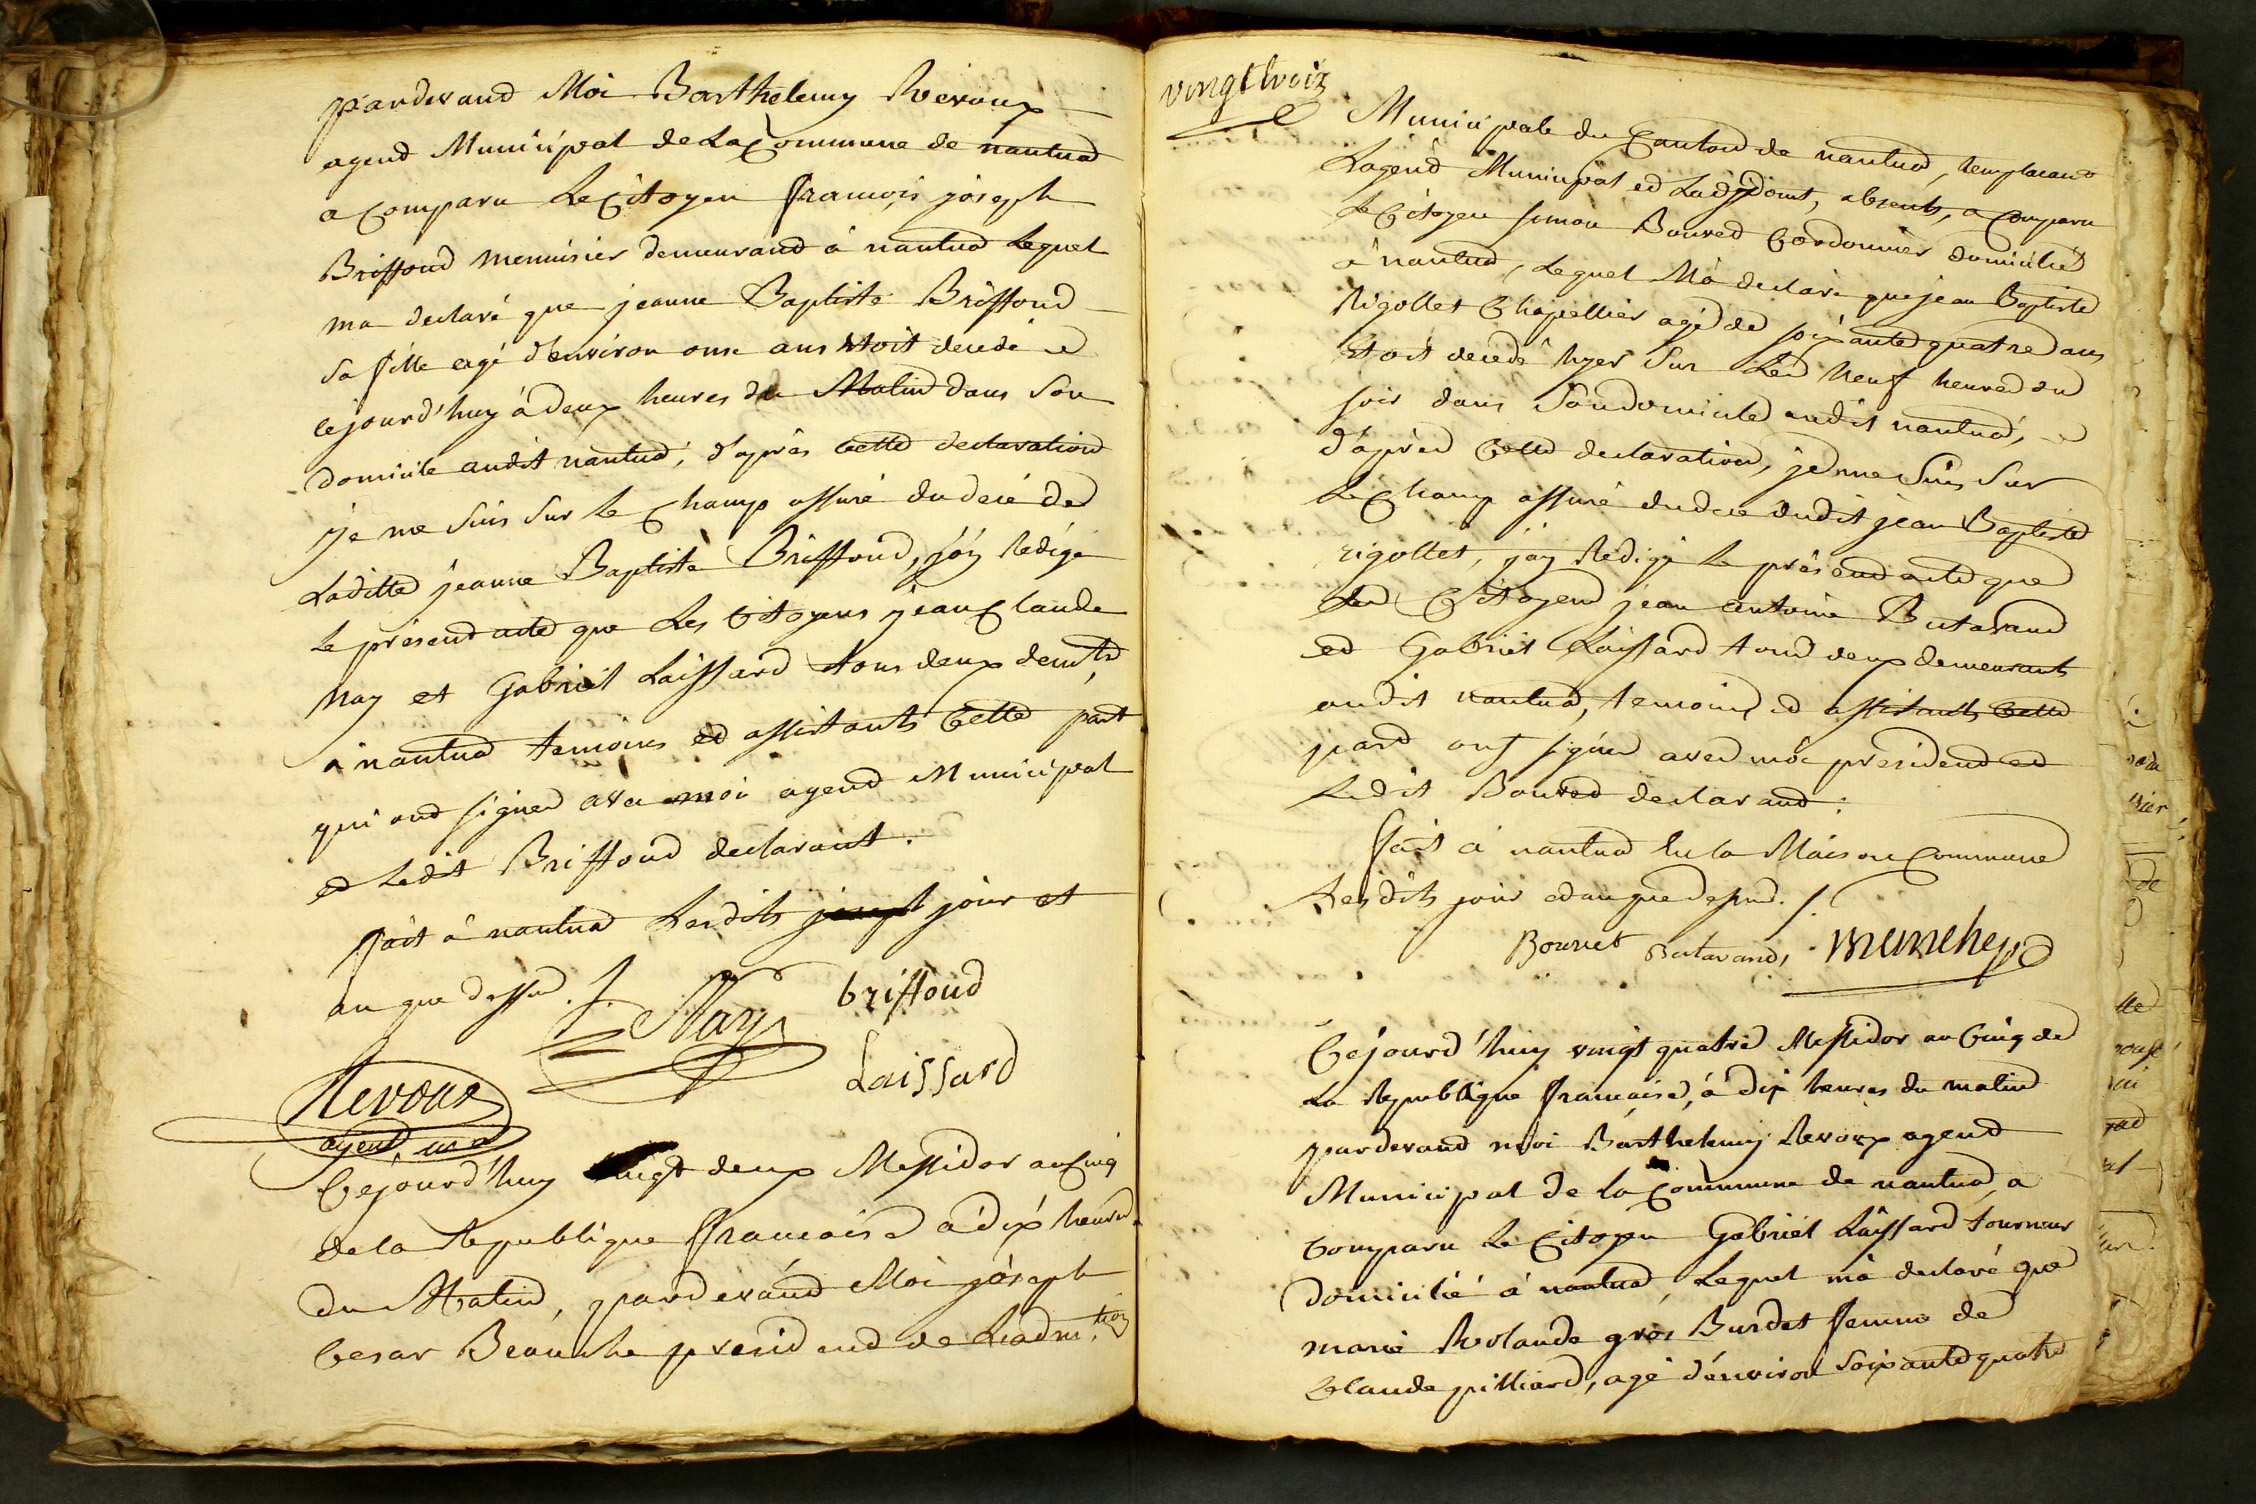 pardevand Moi Barthelemy Revoux
agend Municipal de La Commune de nantua
a Comparu Le Citoyen francois joseph
Briffoud menuisier demeurand à nantua Lequel
ma declaré que jeanne Baptiste Briffoud
Sa fille agé d'environ onse ans Etoit decedé
cejourd'huy à deux heures du Matin dans Son
domicile audit nantua, d'après Cette declaration
je me suis sur le Champ assuré du decé de
Laditte jeanne Baptiste Briffoud, j'ay Redigé
le présend acte que Les Citoyens jean Claude
Nay et Gabriel Laissard tous deux demts
à nantua temoins ed assistants Cette part
qui ond signed avec moi agend Municipal
ed Ledit Briffoud declarant.
fait à nantua Lesdits jour et
an que dessus ./.
Nay
briffoud
Laissard
Revoux
agend
Cejourd'huy vingt deux Messidor an Cinq
de la Republique francoise à dix heures
du Matin, pardevand Moi joseph
Cesar president de Ladm.tion
vingt trois
Municipale du Canton de nantua, Remplacand
Lagend Municipal ed Ladjoint, absents, a Comparu
Le Citoyen simon Bouved Cordonnier domicilié
à nantua, Lequel M'a declaré que jean Baptiste
Rigollet Chapellier agé de soixante quatre ans
Etoit decedé hyer Sur Les Neuf heures du
soir dans Son domicile audit nantua,
d'après Cette declaration, je me Suis Sur
Le Champ assuré du decé dudit jean Baptiste
rigollet, j'ay Redigé Le présend acte que
Les Citoyens jean antoine Butavand
ed Gabriel Laissard tous deux demeurants
audit nantua, temoins ed assistants Cette
pard ont signed avec moi présidend ed
Ledit Bouved declarand.
fait à nantua En la Maison Commune
Lesdits jour ed an que dessus ./.
Bouvet Butavand,
Cejourd'huy vingt quatre Messidor an Cinq de
La Republique francoise, à dix heures du matin
pardevand moi Barthelemy Revoux agend
Municipal de la Commune de nantua, a
Comparu Le Citoyen Gabriel Laissard tourneur
Domicilié à nantua, Lequel m'a declaré que
marie Rolande gros Burdet femme de
Claude pilliard, agé d'environ Soixante quatre